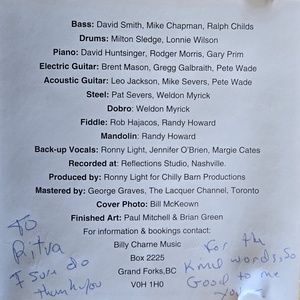 Bass: David Smith, Mike Chapman, Ralph Childs
Drums: Milton Sledge, Lonnie Wilson
Piano: David Huntsinger, Rodger Morris, Gary Prim
Electric Guitar: Brent Mason, Gregg Galbraith, Pete Wade
Acoustic Guitar: Leo Jackson, Mike Severs, Pete Wade
Steel: Pat Severs, Weldon Myrick
Dobro: Weldon Myrick
Fiddle: Rob Hajacos, Randy Howard
Mandolin: Randy Howard
Back-up Vocals: Ronny Light, Jennifer O'Brien, Margie Cates
Recorded at: Reflections Studio, Nashville.
Produced by: Ronny Light for Chilly Barn Productions
Mastered by: George Graves, The Lacquer Channel, Toronto
Cover Photo: Bill McKeown
Finished Art: Paul Mitchell & Brian Green
For information & bookings contact:
Billy Charne Music
Box 2225
Grand Forks,BC
V0H 1H0
To
Ritva
I sure do
thank you
For the
Kind words, So
Good to me